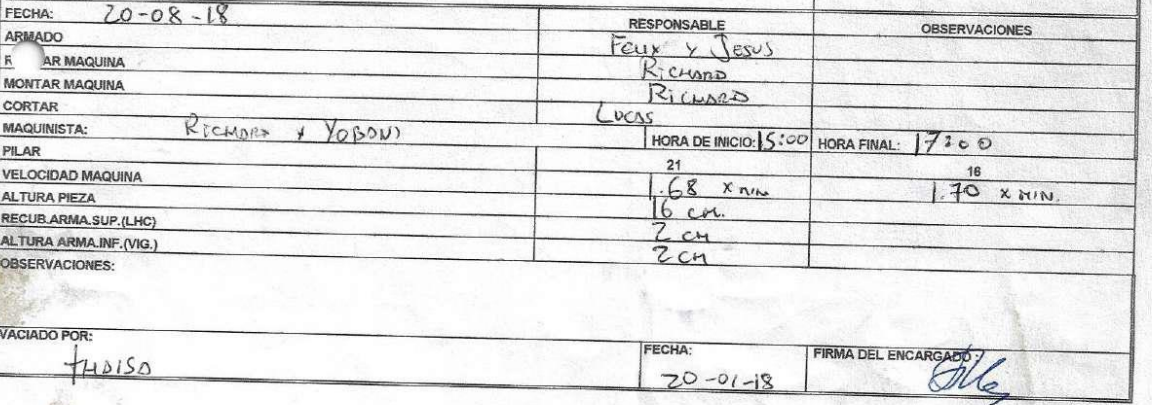 FECHA: 20-08-18
RESPONSABLE OBSERVACIONES
ARMADO Felix y Jesus
AR MAQUINA Richard
MONTAR MAQUINA Richard
CORTAR Lucas
MAQUINISTA: Richard y Yoboni HORA DE INICIO: 15:00 HORA FINAL: 17:00
PILAR 21 16
VELOCIDAD MAQUINA 1.68 x min 1.70 x MIN.
ALTURA PIEZA 16 cm.
RECUB.ARMA.SUP.(LHC) 2 cm
ALTURA ARMA.INF.(VIG.) 2 cm
OBSERVACIONES:
VACIADO POR: FECHA: FIRMA DEL ENCARGADO:
20-01-18